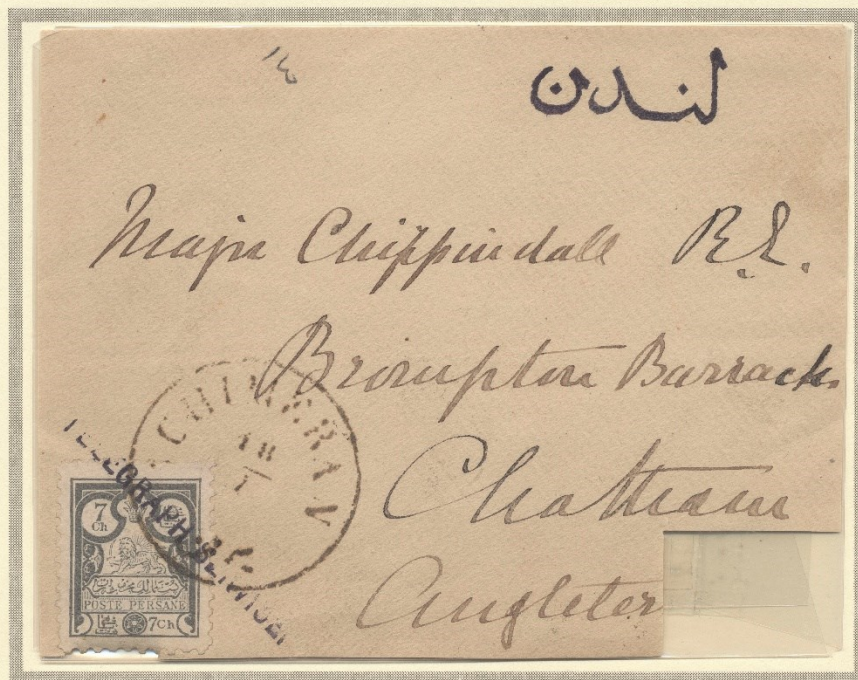 ۱۳
لندن
Major Chippindall R.E.
Brompton Barracks
Chatham
Angleter
CHIMERAN
18
1
TELEGRAPH SERVICE
7
Ch
POSTE PERSANE
7 Ch